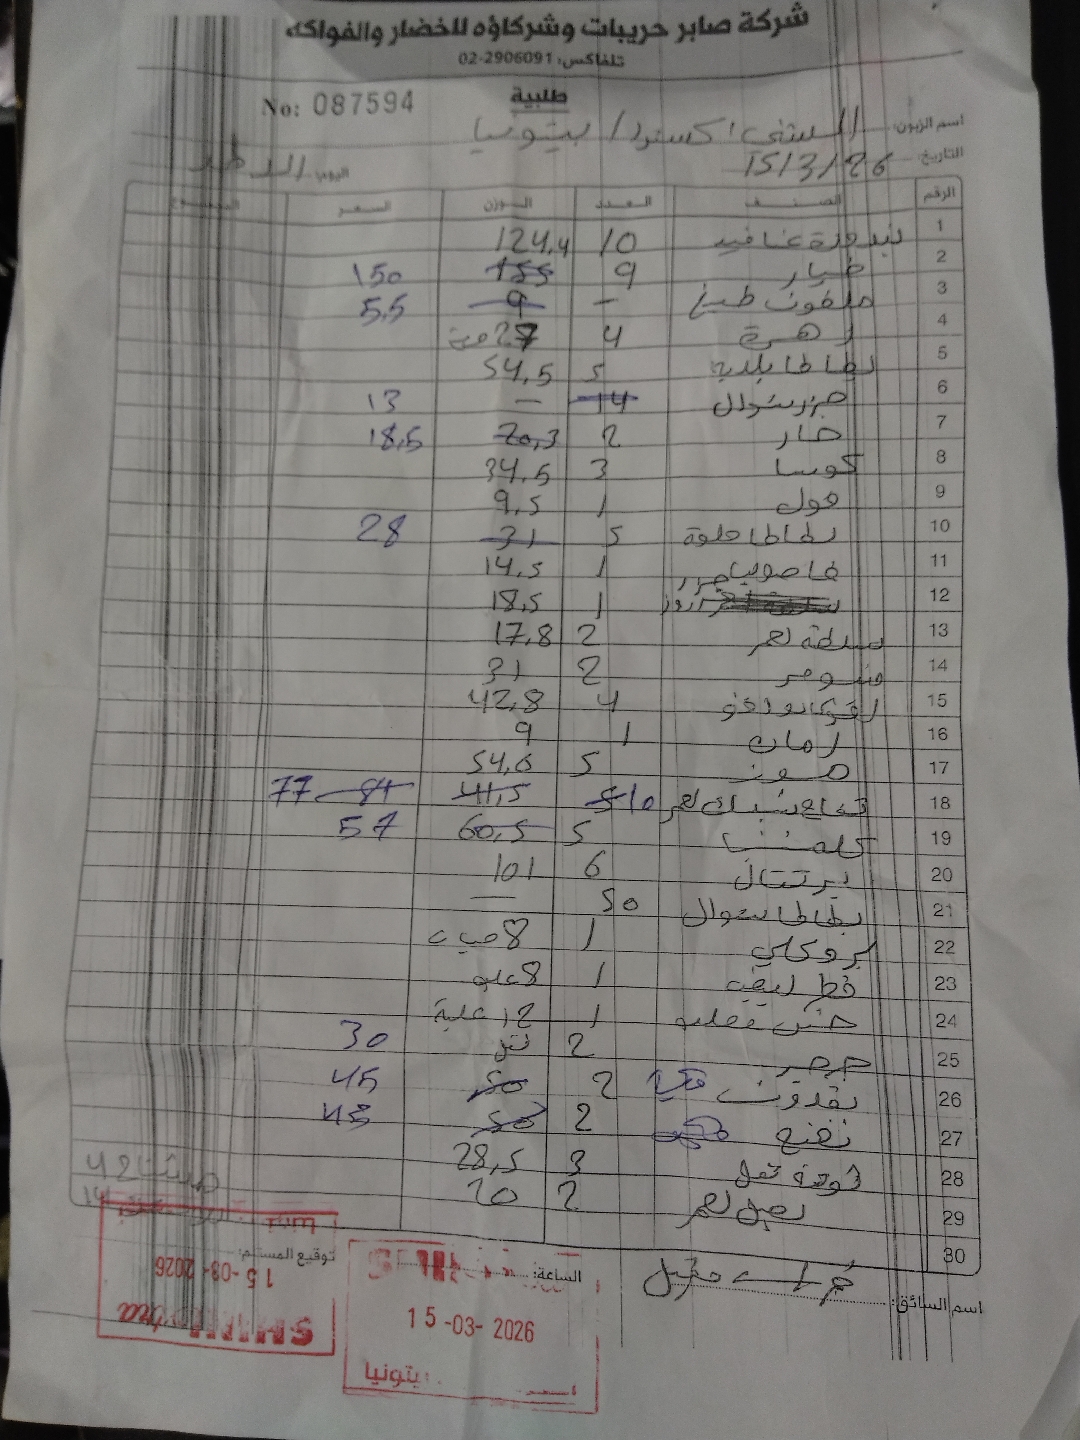 شركة صابر حريبات وشركاؤه للخضار والفواكه
تلفاكس: 02-2906091
طلبية
No: 087594
اسم الزبون: الشني اكسترا / بيتونيا
التاريخ: 15/3/26 اليوم:
الرقم الصنف العدد الوزن السعر المجموع
1 بندورة عناقيد 10 124,4
2 خيار 9 155 150
3 ملفوف طبخ - 9 5,5
4 زهرة 4 27
5 بطاطا بلدية 5 54,5
6 جزر شوال 14 - 13
7 حار 2 20,3 18,5
8 كوسا 3 34,5
9 فول 1 9,5
10 بطاطا حلوة 5 31 28
11 فاصوليا 1 14,5
12 1 18,5
13 2 17,8
14 شومر 2 31
15 افوكادو 4 42,8
16 رمان 1 9
17 موز 5 54,6
18 تفاح 10 41,5 84 77
19 كلمنتينا 5 60,5 57
20 برتقال 6 101
21 بطاطا شوال 50 —
22 بروكلي 1 8 حبات
23 فطر 1 8 علب
24 خس 1 12 علبة
25 جرجير 2 30
26 بقدونس 2 50 45
27 نعنع 2 50 48
28 ثومة 3 28,5
29 بصل 2 20
30
اسم السائق:
الساعة:
توقيع المستلم:
15-03-2026
SHINI extra
15-03-2026
بيتونيا